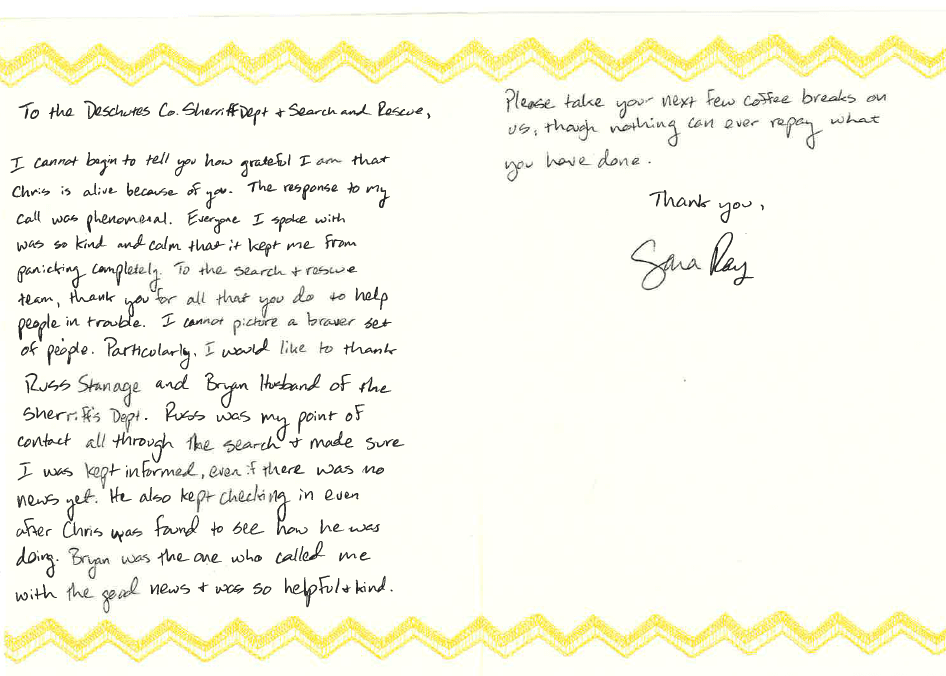 To the Deschutes Co. Sherriff Dept + Search and Rescue,
I cannot begin to tell you how grateful I am that
Chris is alive because of you. The response to my
call was phenomenal. Everyone I spoke with
was so kind and calm that it kept me from
panicking completely. To the search + rescue
team, thank you for all that you do to help
people in trouble. I cannot picture a braver set
of people. Particularly, I would like to thank
Russ Stanage and Bryan Husband of the
Sherriff's Dept. Russ was my point of
contact all through the search + made sure
I was kept informed, even if there was no
news yet. He also kept checking in even
after Chris was found to see how he was
doing. Bryan was the one who called me
with the good news + was so helpful + kind.
Please take your next few coffee breaks on
us, though nothing can ever repay what
you have done.
Thank you,
Sara Ray